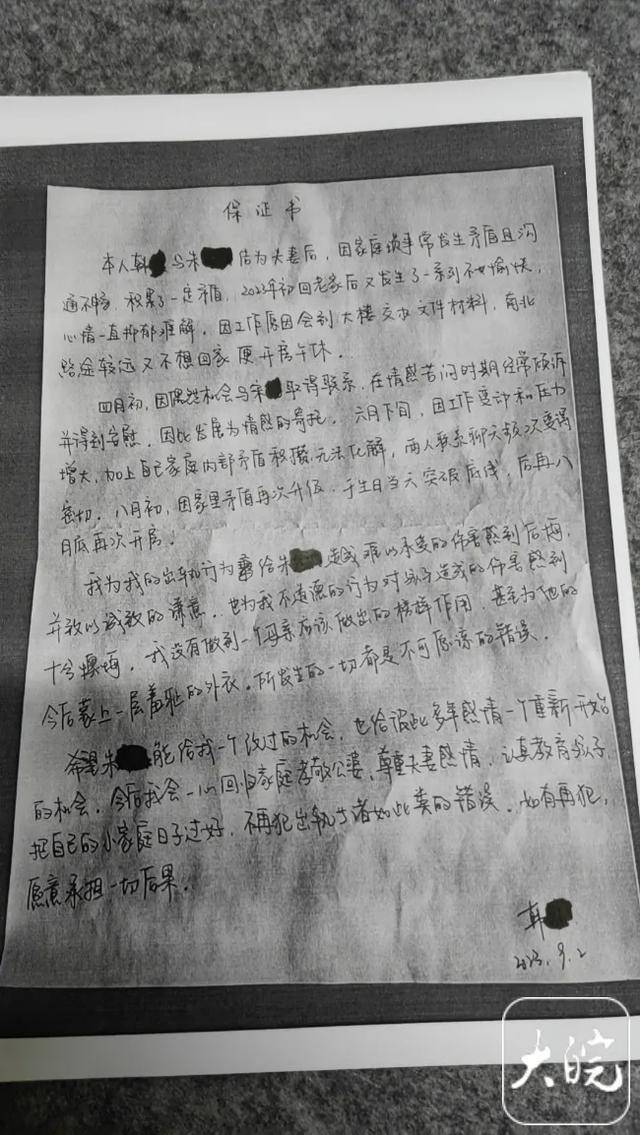 保证书
本人韩 与朱 结为夫妻后，因家庭琐事常发生矛盾且沟
通不畅，积累了一定矛盾，2023年初回老家后又发生了一系列不愉快，
心情一直抑郁难解。因工作原因会到大楼交办文件材料，南北
路途较远又不想回家便开房午休。
四月初，因偶然机会与朱 取得联系，在情感苦闷时期经常倾诉
并得到安慰，因此发展为情感的寄托。六月下旬，因工作变动和压力
增大，加上自己家庭内部矛盾积攒无法化解，两人联系聊天频次变得
密切。八月初，因家里矛盾再次升级，于生日当天突破底线，后再八
月底再次开房。
我为我的出轨行为 给朱 造成难以承受的伤害感到后悔，
并致以诚挚的谦意。也为我不道德的行为对孩子造成的伤害感到
十分懊悔，我没有做到一个母亲应该做出的榜样作用，甚至为他的
今后蒙上一层羞耻的外衣。所发生的一切都是不可原谅的错误。
希望朱 能给我一个改过的机会，也给彼此多年感情一个重新开始
的机会。今后我会一心回归家庭孝敬公婆，尊重夫妻感情，认真教育孩子，
把自己的小家庭日子过好，不再犯出轨或者如此类的错误。如有再犯，
愿意承担一切后果。
韩
2023.9.2
大皖